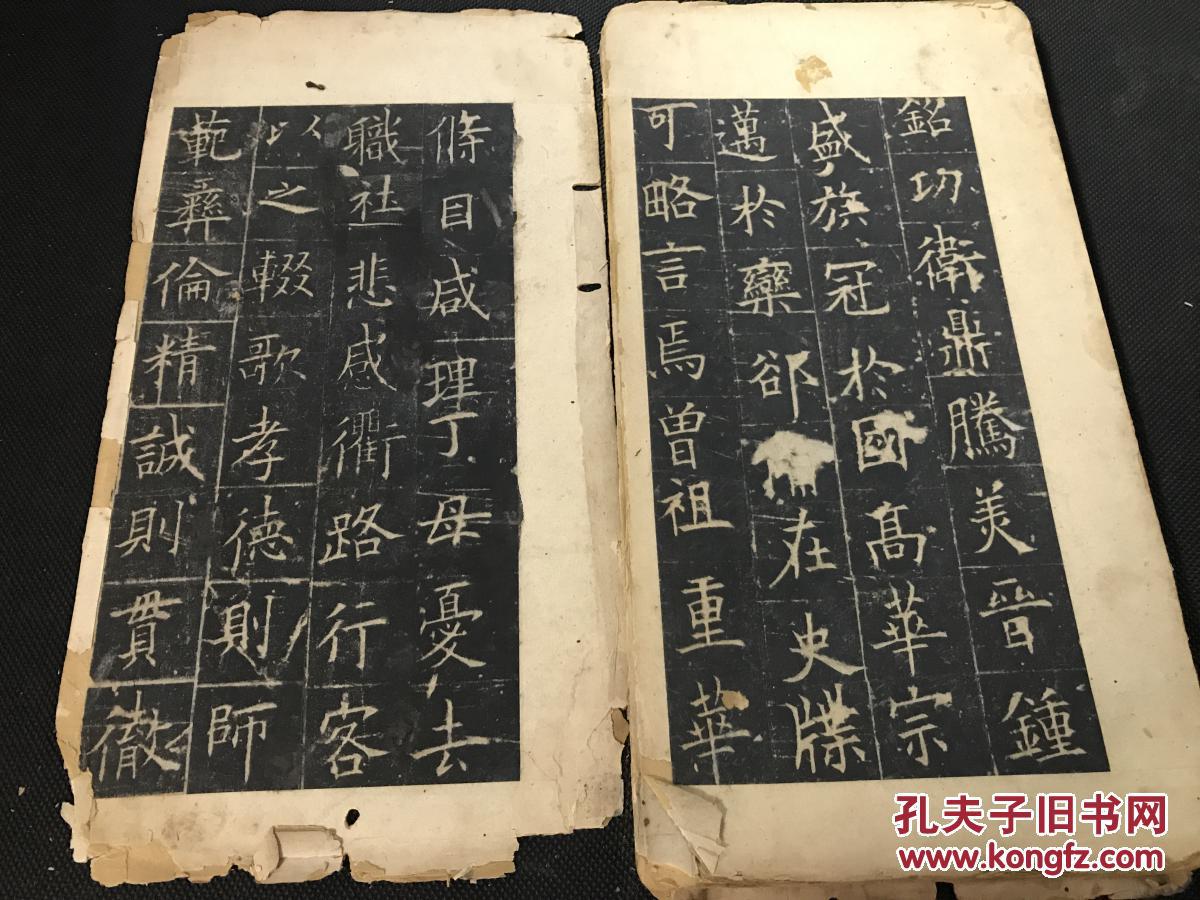 銘功衛鼎騰美晉鍾
盛族冠於國高華宗
邁於欒郤在史牒
可略言焉曾祖重華
條目咸理丁母憂去
職社悲感衢路行客
以之輟歌孝德則師
範彝倫精誠則貫徹
孔夫子旧书网
www.kongfz.com